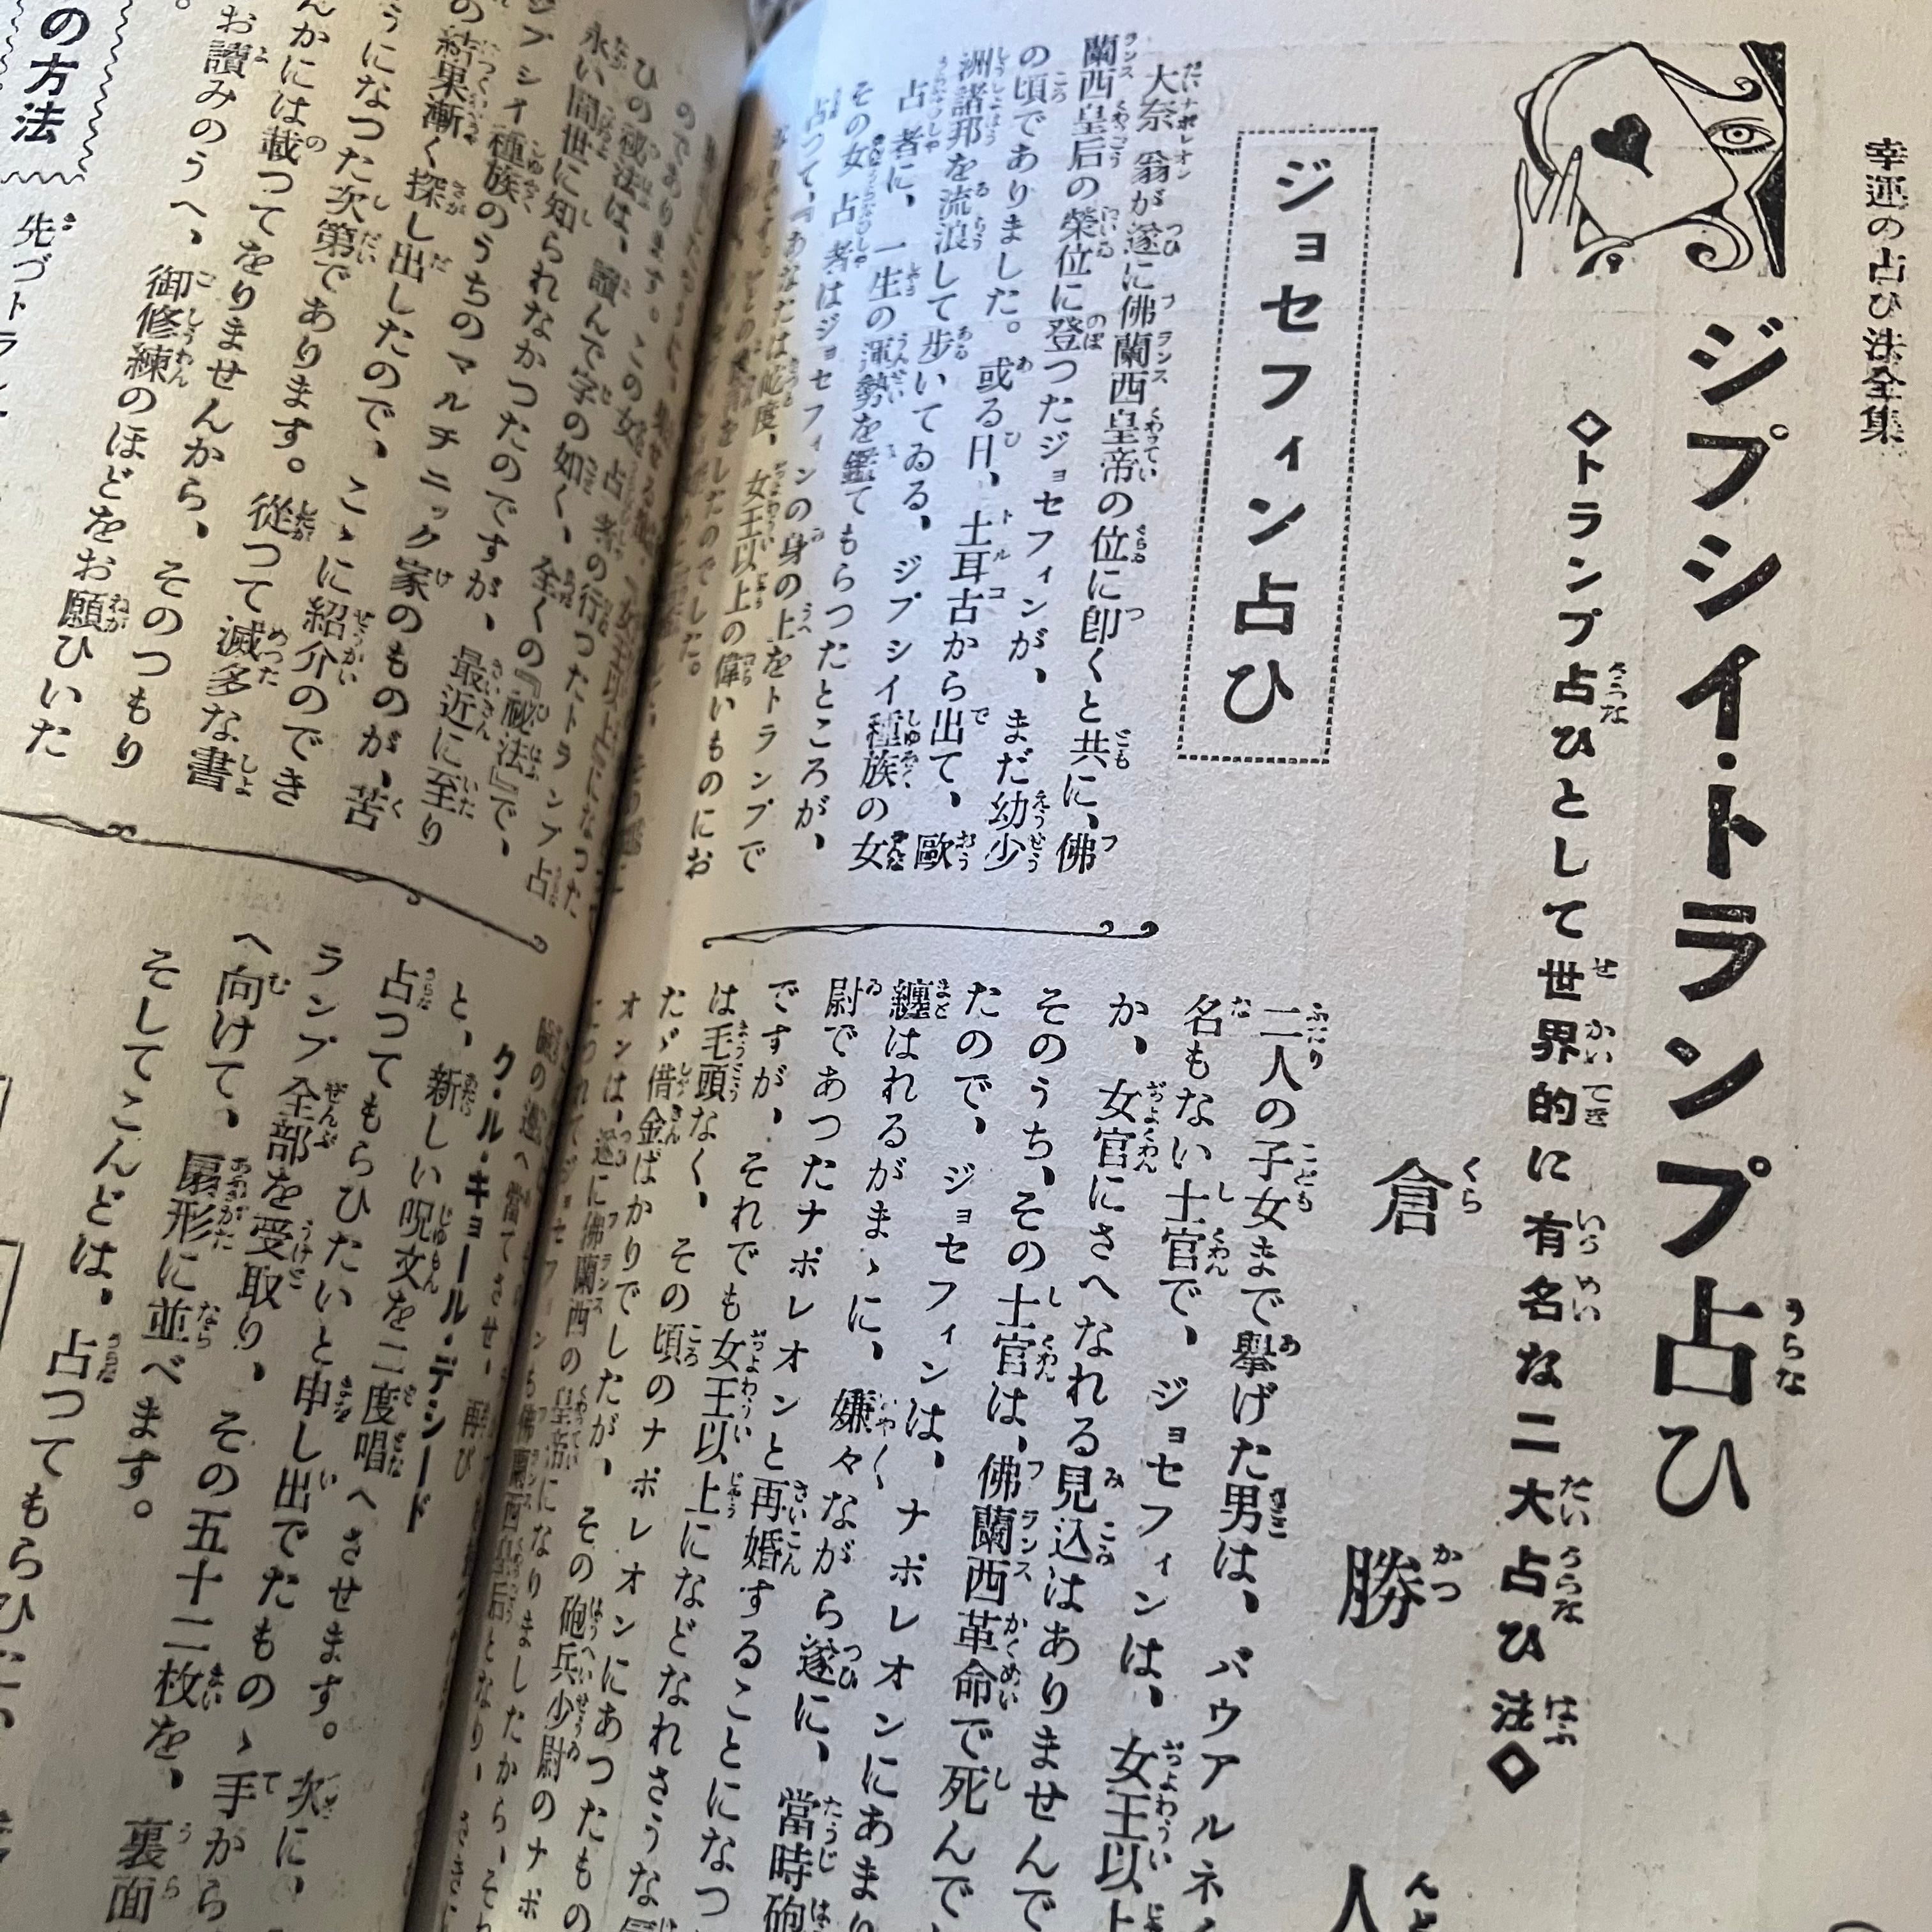 幸運の占ひ法全集
ジプシイ・トランプ占ひ
◇トランプ占ひとして世界的に有名な二大占ひ法◇
倉 勝 人
ジョセフィン占ひ
大奈翁が遂に佛蘭西皇帝の位に卽くと共に、佛
蘭西皇后の榮位に登つたジョセフィンが、まだ幼少
の頃でありました。或る日、土耳古から出て、歐
洲諸邦を流浪して歩いてゐる、ジプシイ種族の女
占者に、一生の運勢を鑑てもらつたところが、
その女占者はジョセフィンの身の上をトランプで
占つて、『あなたは屹度、女王以上の偉いものにお
したのでした。
二人の子女まで擧げた男は、バウアルネ
名もない士官で、ジョセフィンは、女王以上
か、女官にさへなれる見込はありませんで
そのうち、その士官は、佛蘭西革命で死んで
たので、ジョセフィンは、ナポレオンにあま
纏はれるがまゝに、嫌々ながら遂に、當時砲
尉であつたナポレオンと再婚することになつ
ですが、それでも女王以上になどなれさうな
は毛頭なく、その頃のナポレオンにあつたもの
たゞ借金ばかりでしたが、その砲兵少尉のナポ
オンは、遂に佛蘭西の皇帝になりましたから、
のであります。この女占者の行つたトランプ占
ひの祕法は、讀んで字の如く、全くの『祕法』で、
永い間世に知られなかつたのですが、最近に至り
ジプシイ種族のうちのマルチニック家のものが、苦
の結果漸く探し出したので、こゝに紹介のでき
うになつた次第であります。從つて滅多な書
んかには載つてをりませんから、そのつもり
お讀みのうへ、御修練のほどをお願ひいた
の方法
先づトラン
ク・ル・キョール・デシード
と、新しい呪文を二度唱へさせます。次に、
占つてもらひたいと申し出でたものゝ手から
ランプ全部を受取り、その五十二枚を、裏面
へ向けて、扇形に並べます。
そしてこんどは、占つてもらひ